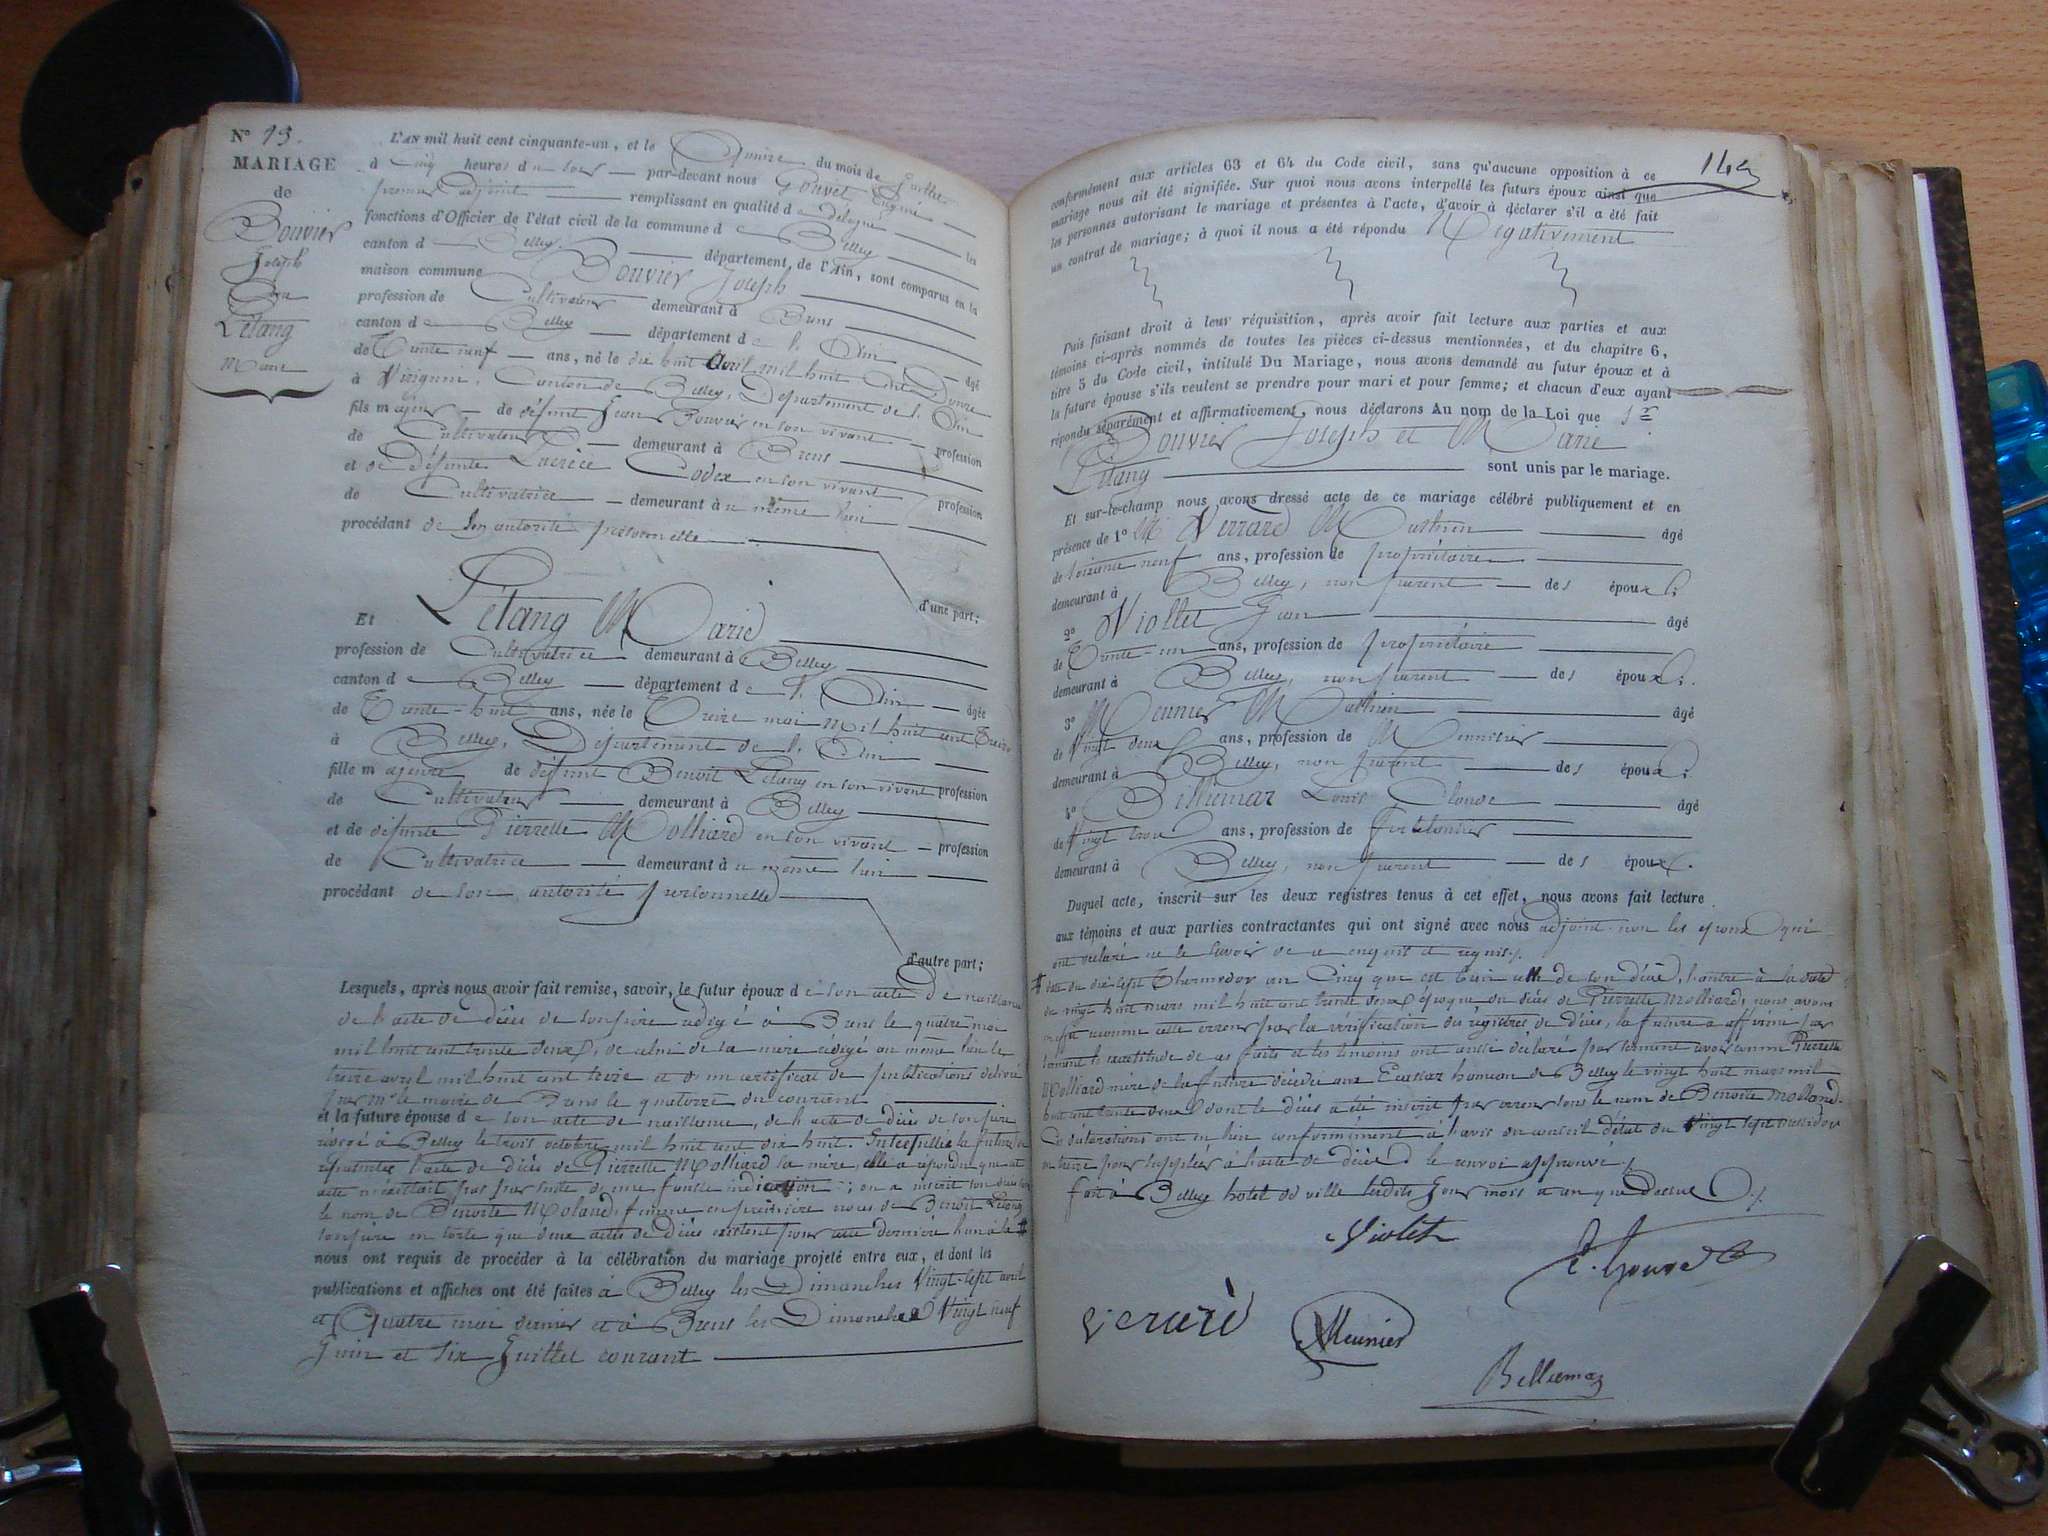 N° 13.
MARIAGE
de
Bouvier
Joseph
Et
L'étang
Marie
L'AN mil huit cent cinquante-un, et le Quinze du mois de Juillet
à cinq heures du soir par-devant nous Gouvet
premier adjoint remplissant en qualité de délégué les
fonctions d'Officier de l'état civil de la commune de Belley
canton de Belley département de l'Ain, sont comparus en la
maison commune Bouvier Joseph
profession de Cultivateur demeurant à Brens
canton de Belley département de l'Ain âgé
de Trente neuf ans, né le dix huit Avril mil huit cent Douze
à Virignin, Canton de Belley, Département de l'Ain
fils majeur de défunt Jean Bouvier en son vivant profession
de Cultivateur demeurant à Brens
et de défunte Lucrèce Codex en son vivant profession
de Cultivatrice demeurant au même lieu
procédant de son autorité personnelle
d'une part;
Et L'étang Marie
profession de Cultivatrice demeurant à Belley
canton de Belley département de l'Ain âgée
de Trente-huit ans, née le Treize mai mil huit cent Treize
à Belley, Département de l'Ain
fille majeure de défunt Benoit L'étang en son vivant profession
de Cultivateur demeurant à Belley
et de défunte Pierrette Molliard en son vivant profession
de Cultivatrice demeurant au même lieu
procédant de son autorité personnelle
d'autre part;
Lesquels, après nous avoir fait remise, savoir, le futur époux de son acte de naissance
de l'acte de décès de son père rédigé à Brens le quatre mai
mil huit cent trente deux, de celui de sa mère rédigé au même lieu le
treize avril mil huit cent treize et d'un certificat de publications délivré
par Mr le maire de Brens le quatorze du courant
et la future épouse de son acte de naissance, de l'acte de décès de son père
rédigé à Belley le trois octobre mil huit cent dix huit. Interpellée la future de
représenter l'acte de décès de Pierrette Molliard sa mère, elle a répondu que cet
acte n'existait pas par suite d'une fausse indication; on a inscrit son décès sous
le nom de Benoite Moland, femme en première noces de Benoît Létang
son père en sorte que deux actes de décès existent pour cette dernière l'un à la #
nous ont requis de procéder à la célébration du mariage projeté entre eux, et dont les
publications et affiches ont été faites à Belley les Dimanches Vingt-sept avril
et Quatre mai dernier et à Brens les Dimanches Vingt neuf
Juin et six Juillet courant
conformément aux articles 63 et 64 du Code civil, sans qu'aucune opposition à ce
mariage nous ait été signifiée. Sur quoi nous avons interpellé les futurs époux ainsi que
les personnes autorisant le mariage et présentes à l'acte, d'avoir à déclarer s'il a été fait
un contrat de mariage; à quoi il nous a été répondu Négativement
Puis faisant droit à leur réquisition, après avoir fait lecture aux parties et aux
témoins ci-après nommés de toutes les pièces ci-dessus mentionnées, et du chapitre 6,
titre 5 du Code civil, intitulé Du Mariage, nous avons demandé au futur époux et à
la future épouse s'ils veulent se prendre pour mari et pour femme; et chacun d'eux ayant
répondu séparément et affirmativement, nous déclarons Au nom de la Loi que
Bouvier Joseph et Marie
Létang sont unis par le mariage.
Et sur-le-champ nous avons dressé acte de ce mariage célébré publiquement et en
présence de 1° M. Verrard Mathieu âgé
de soixante neuf ans, profession de propriétaire
demeurant à Belley, non parent des époux;
2° Viollet Jean âgé
de Trente-un ans, profession de propriétaire
demeurant à Belley, non parent des époux;
3° Meunier Mathieu âgé
de Vingt deux ans, profession de Menuisier
demeurant à Belley, non parent des époux;
4° Billiemaz Louis Claude âgé
de Vingt trois ans, profession de ferblantier
demeurant à Belley, non parent des époux.
Duquel acte, inscrit sur les deux registres tenus à cet effet, nous avons fait lecture
aux témoins et aux parties contractantes qui ont signé avec nous adjoint non les époux qui
ont déclaré ne le savoir de ce enquis et requis.
# date du dix sept Thermidor an Cinq que est bien celle de son décès, l'autre à la date
du vingt huit mars mil huit cent trente deux époque du décès de Pierrette Molliard, nous avons
reconnu cette erreur par la vérification des registres de décès, la future a affirmé par
serment la exactitude de ces faits et les témoins ont aussi déclaré par serment avoir connu Pierrette
Molliard mère de la future décédée aux Ecassaz hameau de Belley le vingt huit mars mil
huit cent trente deux dont le décès a été inscrit par erreur sous le nom de Benoite Molland.
Ces déclarations ont eu lieu conformément à l'avis du conseil d'état du Vingt sept messidor
an treize pour suppléer à l'acte de décès le renvoi approuvé
fait à Belley hotel de ville lesdits Jour mois et an que dessus
Violet
Gouvet
Verard
Meunier
Billiemaz